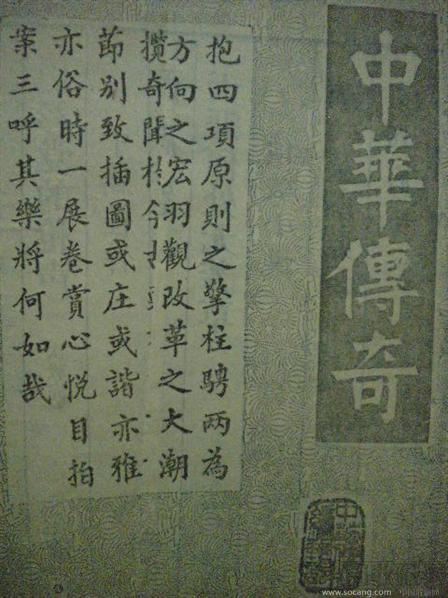 中華傳奇
抱四項原則之擎柱騁两為
方向之宏羽觀改革之大潮
攬奇聞於今古
節別致插圖或庄或諧亦雅
亦俗時一展卷賞心悦目拍
案三呼其樂將何如哉
www.socang.com